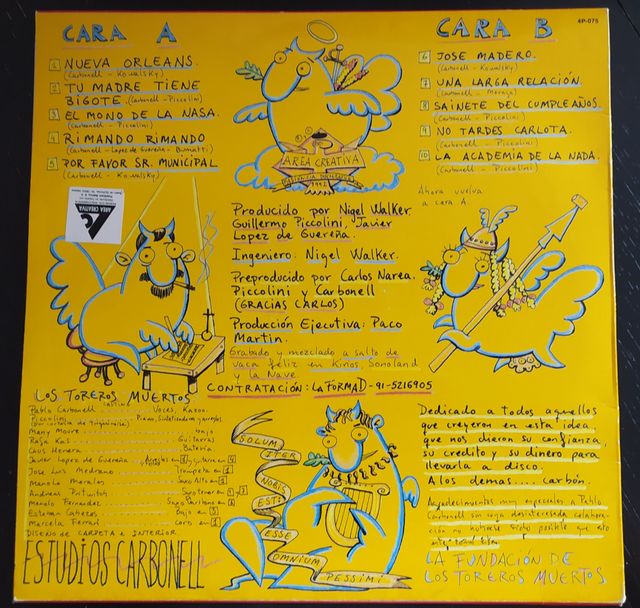 CARA A
1 NUEVA ORLEANS.
(Carbonell - Kowalsky)
2 TU MADRE TIENE
BIGOTE. (Carbonell - Piccolini)
3 EL MONO DE LA NASA.
(Carbonell - Piccolini)
4 RIMANDO RIMANDO
(Carbonell - Lopez de Guereña -
5 POR FAVOR SR. MUNICIPAL
(Carbonell - Kowalsky)
AREA CREATIVA
1992
CARA B
4P-075
6 JOSE MADERO.
(Carbonell - Kowalsky)
7 UNA LARGA RELACIÓN.
(Carbonell -
8 SAINETE DEL CUMPLEAÑOS.
(Carbonell - Piccolini)
9 NO TARDES CARLOTA.
(Carbonell - Piccolini)
10 LA ACADEMIA DE LA NADA.
(Carbonell - Piccolini)
Ahora vuelva
a cara A.
AREA CREATIVA
Producido por Nigel Walker.
Guillermo Piccolini, Javier
Lopez de Guereña.
Ingeniero: Nigel Walker.
Preproducido por Carlos Narea,
Piccolini y Carbonell
(GRACIAS CARLOS)
Producción Ejecutiva: Paco
Martin.
Grabado y mezclado a salto de
vaca feliz en Kirios, Sonoland
y la Nave.
CONTRATACIÓN: LA FORMAD - 91-5216905
LOS TOREROS MUERTOS
Pablo Carbonell Voces, Kazoo.
Piccolini Piano, Sintetizadores y arreglos
(por cortesía de
Many Moure bajo
Guitarras
Batería
Javier Lopez de Guereña
Jose Luis Medrano Trompeta en
Manolo Morales Saxo Alto en
Andreas Prittwitz Saxo tenor en
Manolo Fernandez Saxo Baritono en
Esteban Cabezos Bajo en
Marcela Ferrari Coro en
DISEÑO DE CARPETA e INTERIOR
ESTUDIOS CARBONELL
SOLUM
ITER
NOBIS
EST:
ESSE
OMNIUM
PESSIMI
Dedicado a todos aquellos
que creyeron en esta idea,
que nos dieron su confianza,
su crédito y su dinero para
llevarla a disco.
A los demas.... carbón.
Agradecimientos muy especiales a Pablo
Carbonell sin cuya desinteresada colabora-
ción no hubiese sido posible que este
LA FUNDACIÓN DE
LOS TOREROS MUERTOS